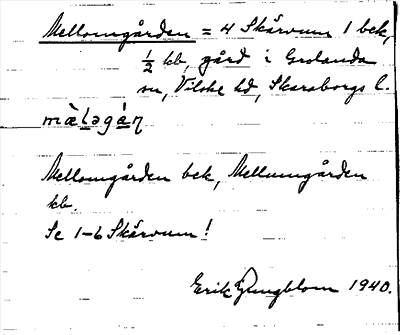 Mellomgården = 4 Skärvum 1 bek,
1/2 kb, gård i Grolanda
sn, Vilske hd, Skaraborgs l.
mä̀ləgán
Mellomgården bek, Mellumgården
kb.
Se 1-6 Skärvum!
Erik Ljungblom 1940.